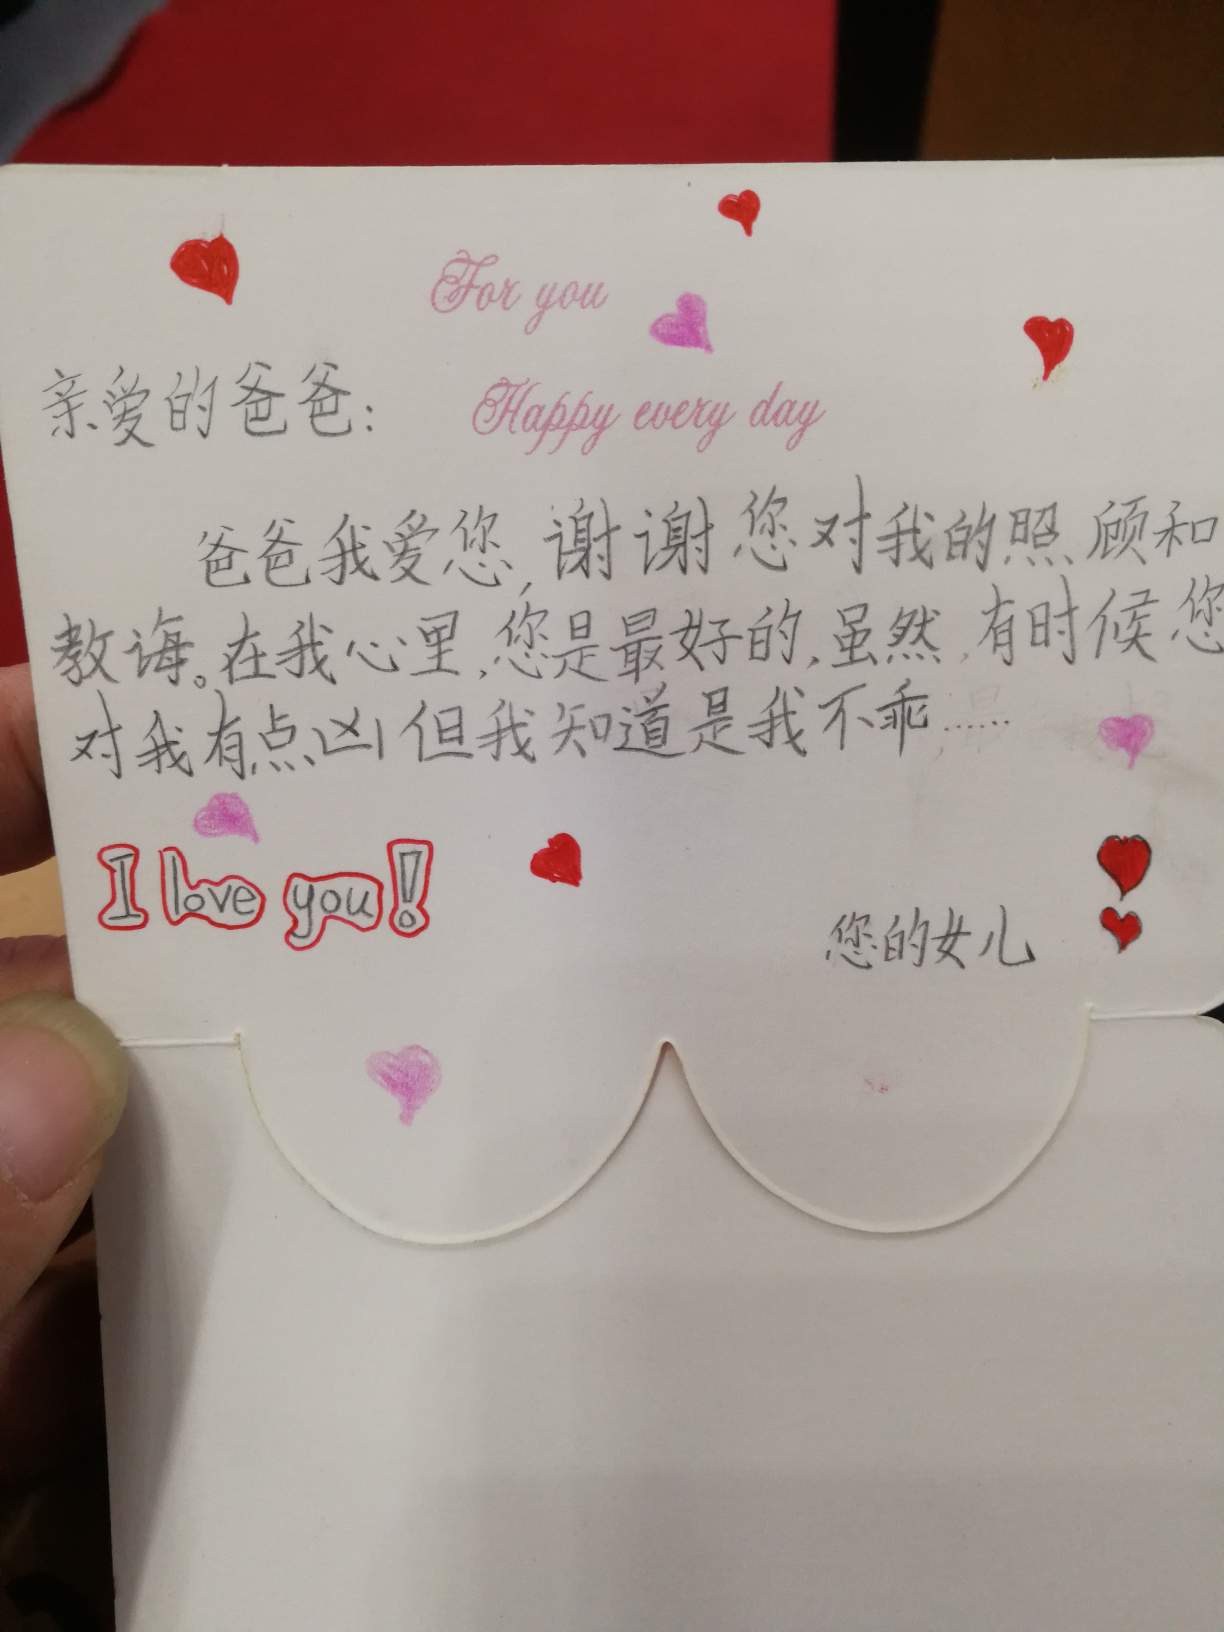 For you
亲爱的爸爸:
Happy every day
爸爸我爱您,谢谢您对我的照顾和
教诲。在我心里,您是最好的,虽然,有时候您
对我有点凶但我知道是我不乖……
I love you!
您的女儿